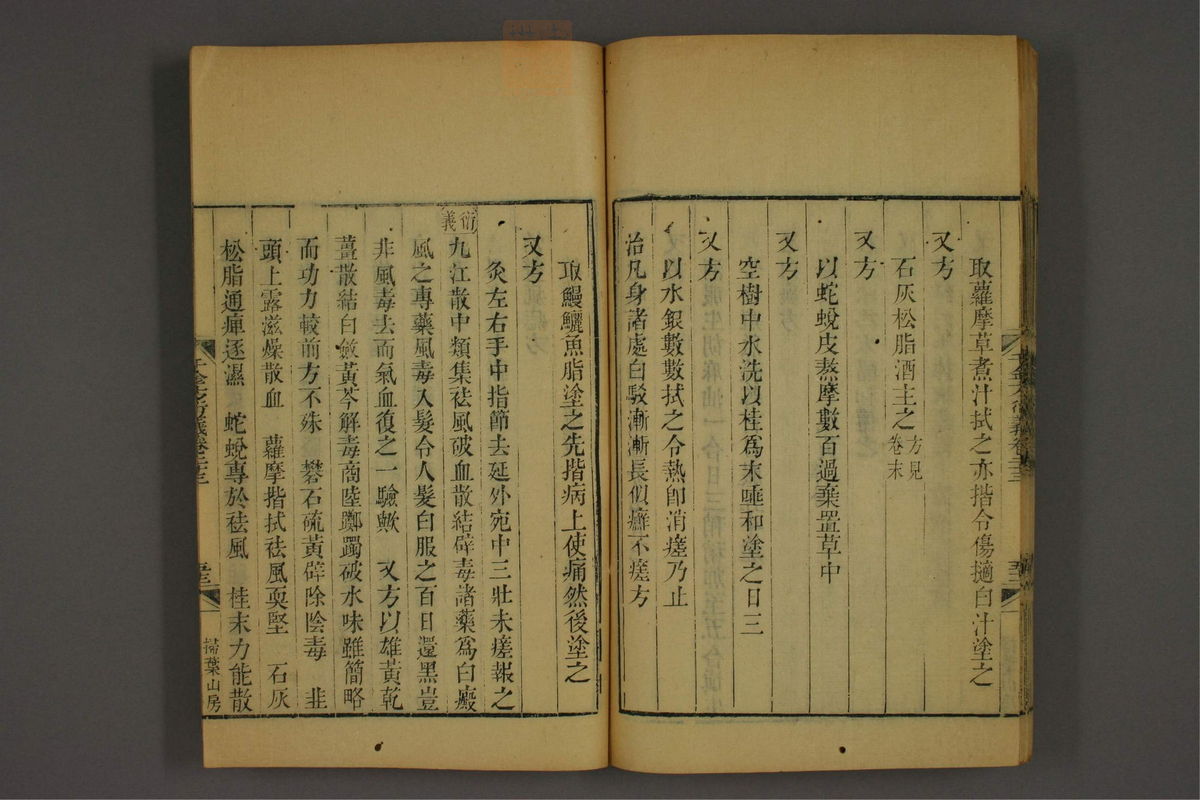 取蘿摩草煮汁拭之亦揩令傷擿白汁塗之
又方
石灰松脂酒主之方見卷末
又方
以蛇蛻皮熬摩數百過棄置草中
又方
空樹中水洗以桂爲末唾和塗之日三
又方
以水銀數數拭之令熱卽消瘥乃止
治凡身諸處白駁漸漸長似癬不瘥方
取鰻鱺魚脂塗之先揩病上使痛然後塗之
又方
灸左右手中指節去延外宛中三壯未瘥報之
衍義
九江散中類集祛風破血散結辟毒諸藥爲白癜
風之專藥風毒入髮令人髮白服之百日還黑豈
非風毒去而氣血復之一驗歟 又方以雄黃乾
薑散結白斂黃芩解毒商陸躑躅破水味雖簡略
而功力較前方不殊 礬石硫黃辟除陰毒 韭
頭上露滋燥散血 蘿摩揩拭祛風耎堅 石灰
松脂通痺逐濕 蛇蛻專於祛風 桂末力能散
掃葉山房